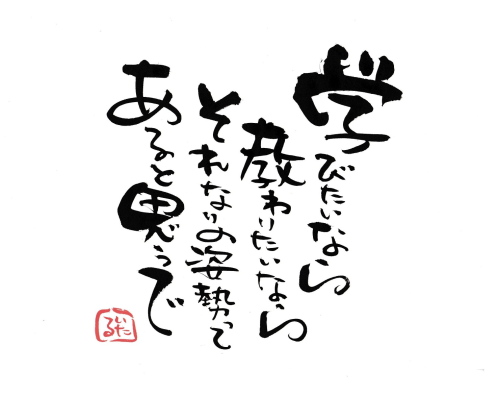 学びたいなら
教わりたいなら
それなりの姿勢って
あると思うで
いたる